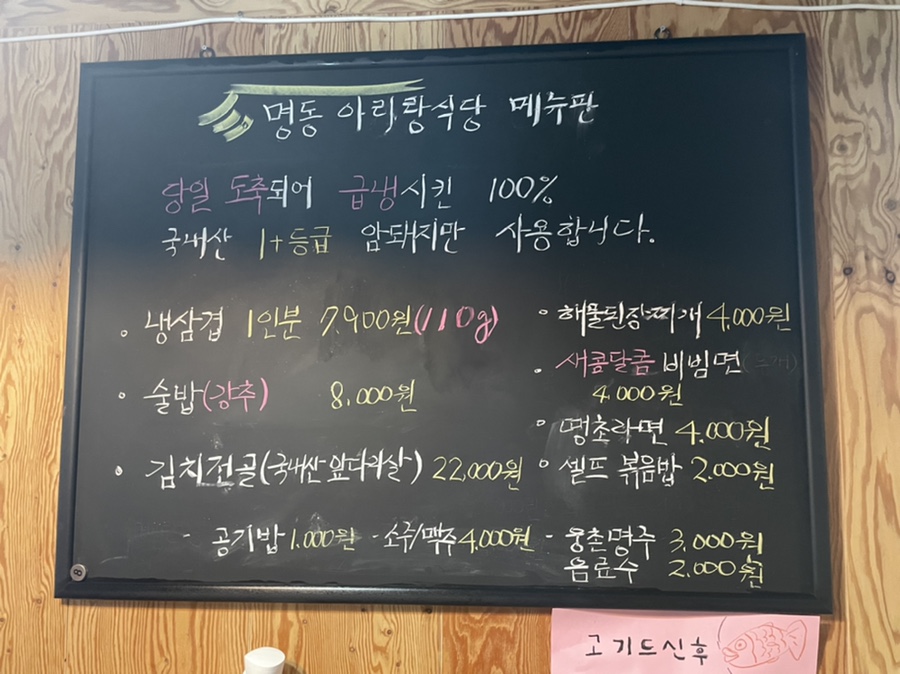 명동 아리랑식당 메뉴판
당일 도축되어 급냉시킨 100%
국내산 1+등급 암돼지만 사용합니다.
냉삼겹 1인분 7,900원(110g)
술밥(강추) 8,000원
김치전골(국내산 앞다리살) 22,000원
해물된장찌개 4,000원
새콤달콤 비빔면
4,000원
땡초라면 4,000원
셀프 볶음밥 2,000원
- 공기밥 1,000원 - 소주/맥주 4,000원 - 웅촌명주 3,000원
음료수 2,000원
고기드신후